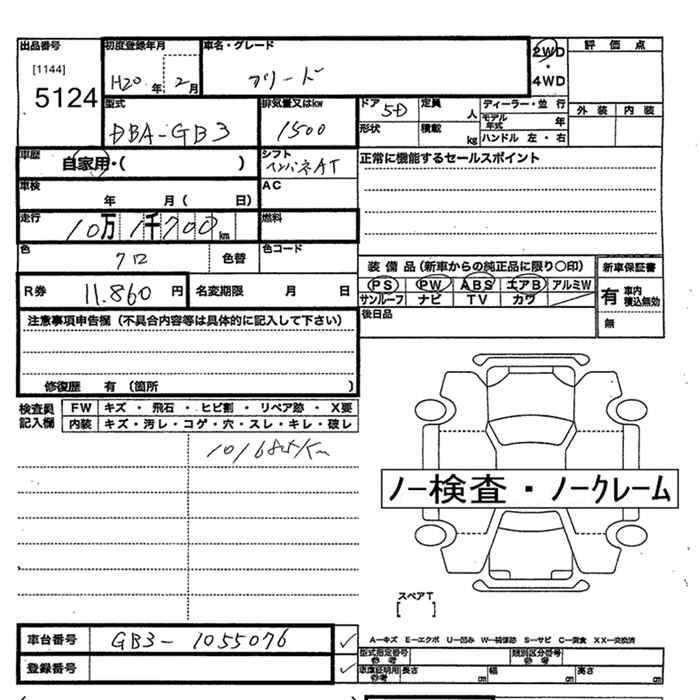 出品番号
[1144]
5124
初度登録年月
H20 年 2 月
車名・グレード
フリード
2WD
・
4WD
評 価 点
外 装 内 装
型式
DBA-GB3
排気量又はkw
1500
ドア 5D
形状
定員 人
積載 kg
ディーラー・並 行
モデル年式 年
ハンドル 左・右
車歴
自家用・( )
シフト
インパネAT
正常に機能するセールスポイント
車検
年 月( 日)
AC
走行
10万 1千700 km
燃料
色
クロ
色替
色コード
R券 11.860 円
名変期限 月 日
装 備 品 (新車からの純正品に限り〇印)
PS PW ABS エアB アルミW
サンルーフ ナビ TV カワ
後日品
新車保証書
有 車内積込無効
無
注意事項申告欄 (不具合内容等は具体的に記入して下さい)
修復歴 有 (箇所 )
検査員記入欄
FW キズ・飛石・ヒビ割・リペア跡・X要
内装 キズ・汚レ・コゲ・穴・スレ・キレ・破レ
101685Km
ノー検査・ノークレーム
スペアT
[ ]
車台番号 GB3-1055076 ✓
登録番号 ✓
A−キズ E−エクボ U−凹み W−補修跡 S−サビ C−腐食 XX−交換済
型式指定番号 参考
類別区分番号 参考
車庫証明用 参考 長さ cm 幅 cm 高さ cm